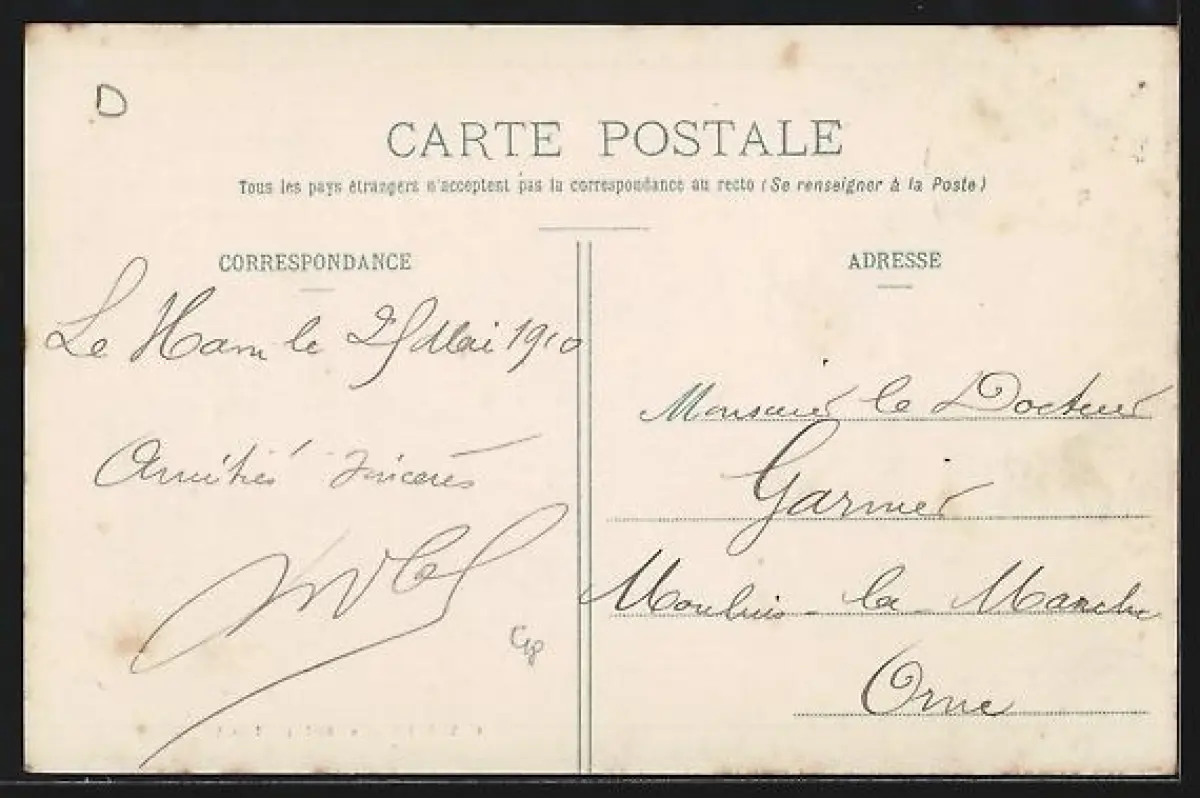 D
CARTE POSTALE
Tous les pays étrangers n'acceptent pas la correspondance au recto (Se renseigner à la Poste)
CORRESPONDANCE
Le Ham le 25 Mai 1910
Amitiés sincères
ADRESSE
Monsieur le Docteur
Garnier
Moulins-la-Marche
Orne